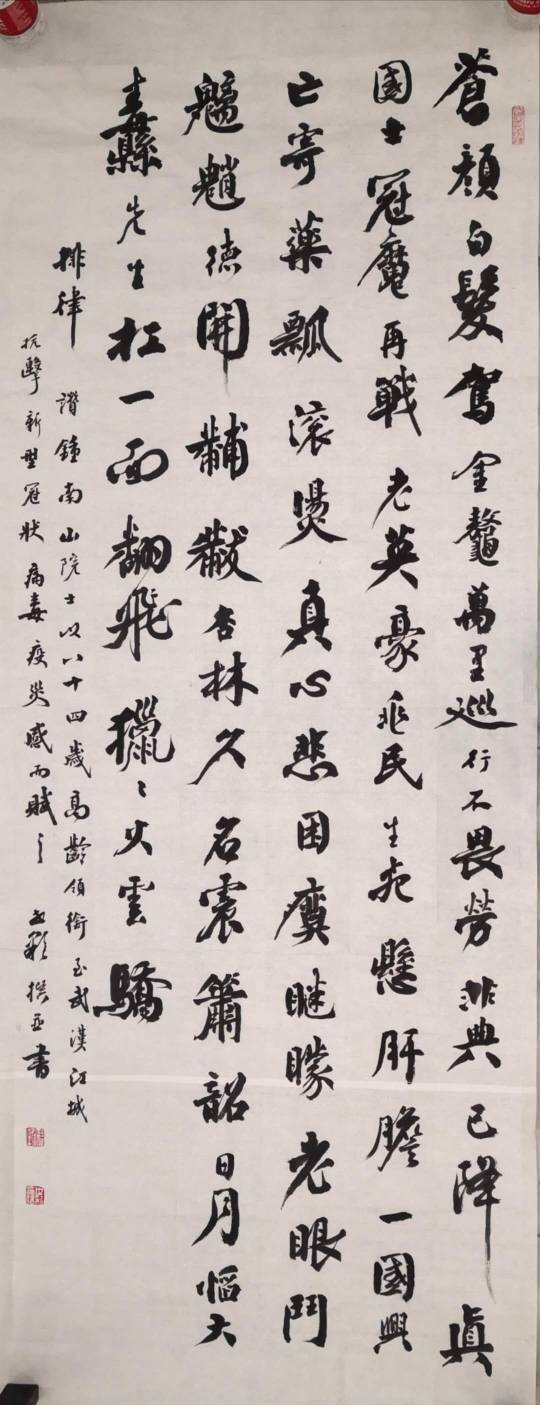 蒼顏白髮駕金鼇萬里巡行不畏勞非典已降真
國士冠魔再戰老英豪兆民生死懸肝膽一國興
亡寄藥瓢滾燙真心悲困廙瞇矇老眼鬥
魑魈德開黼黻杏林久名震簫韶日月慆大
纛先生扛一面翻飛獵〻火雲驕
排律 讚鍾南山院士以八十四歲高齡領銜至武漢江城
抗擊新型冠狀病毒疫災感而賦之 撰並書